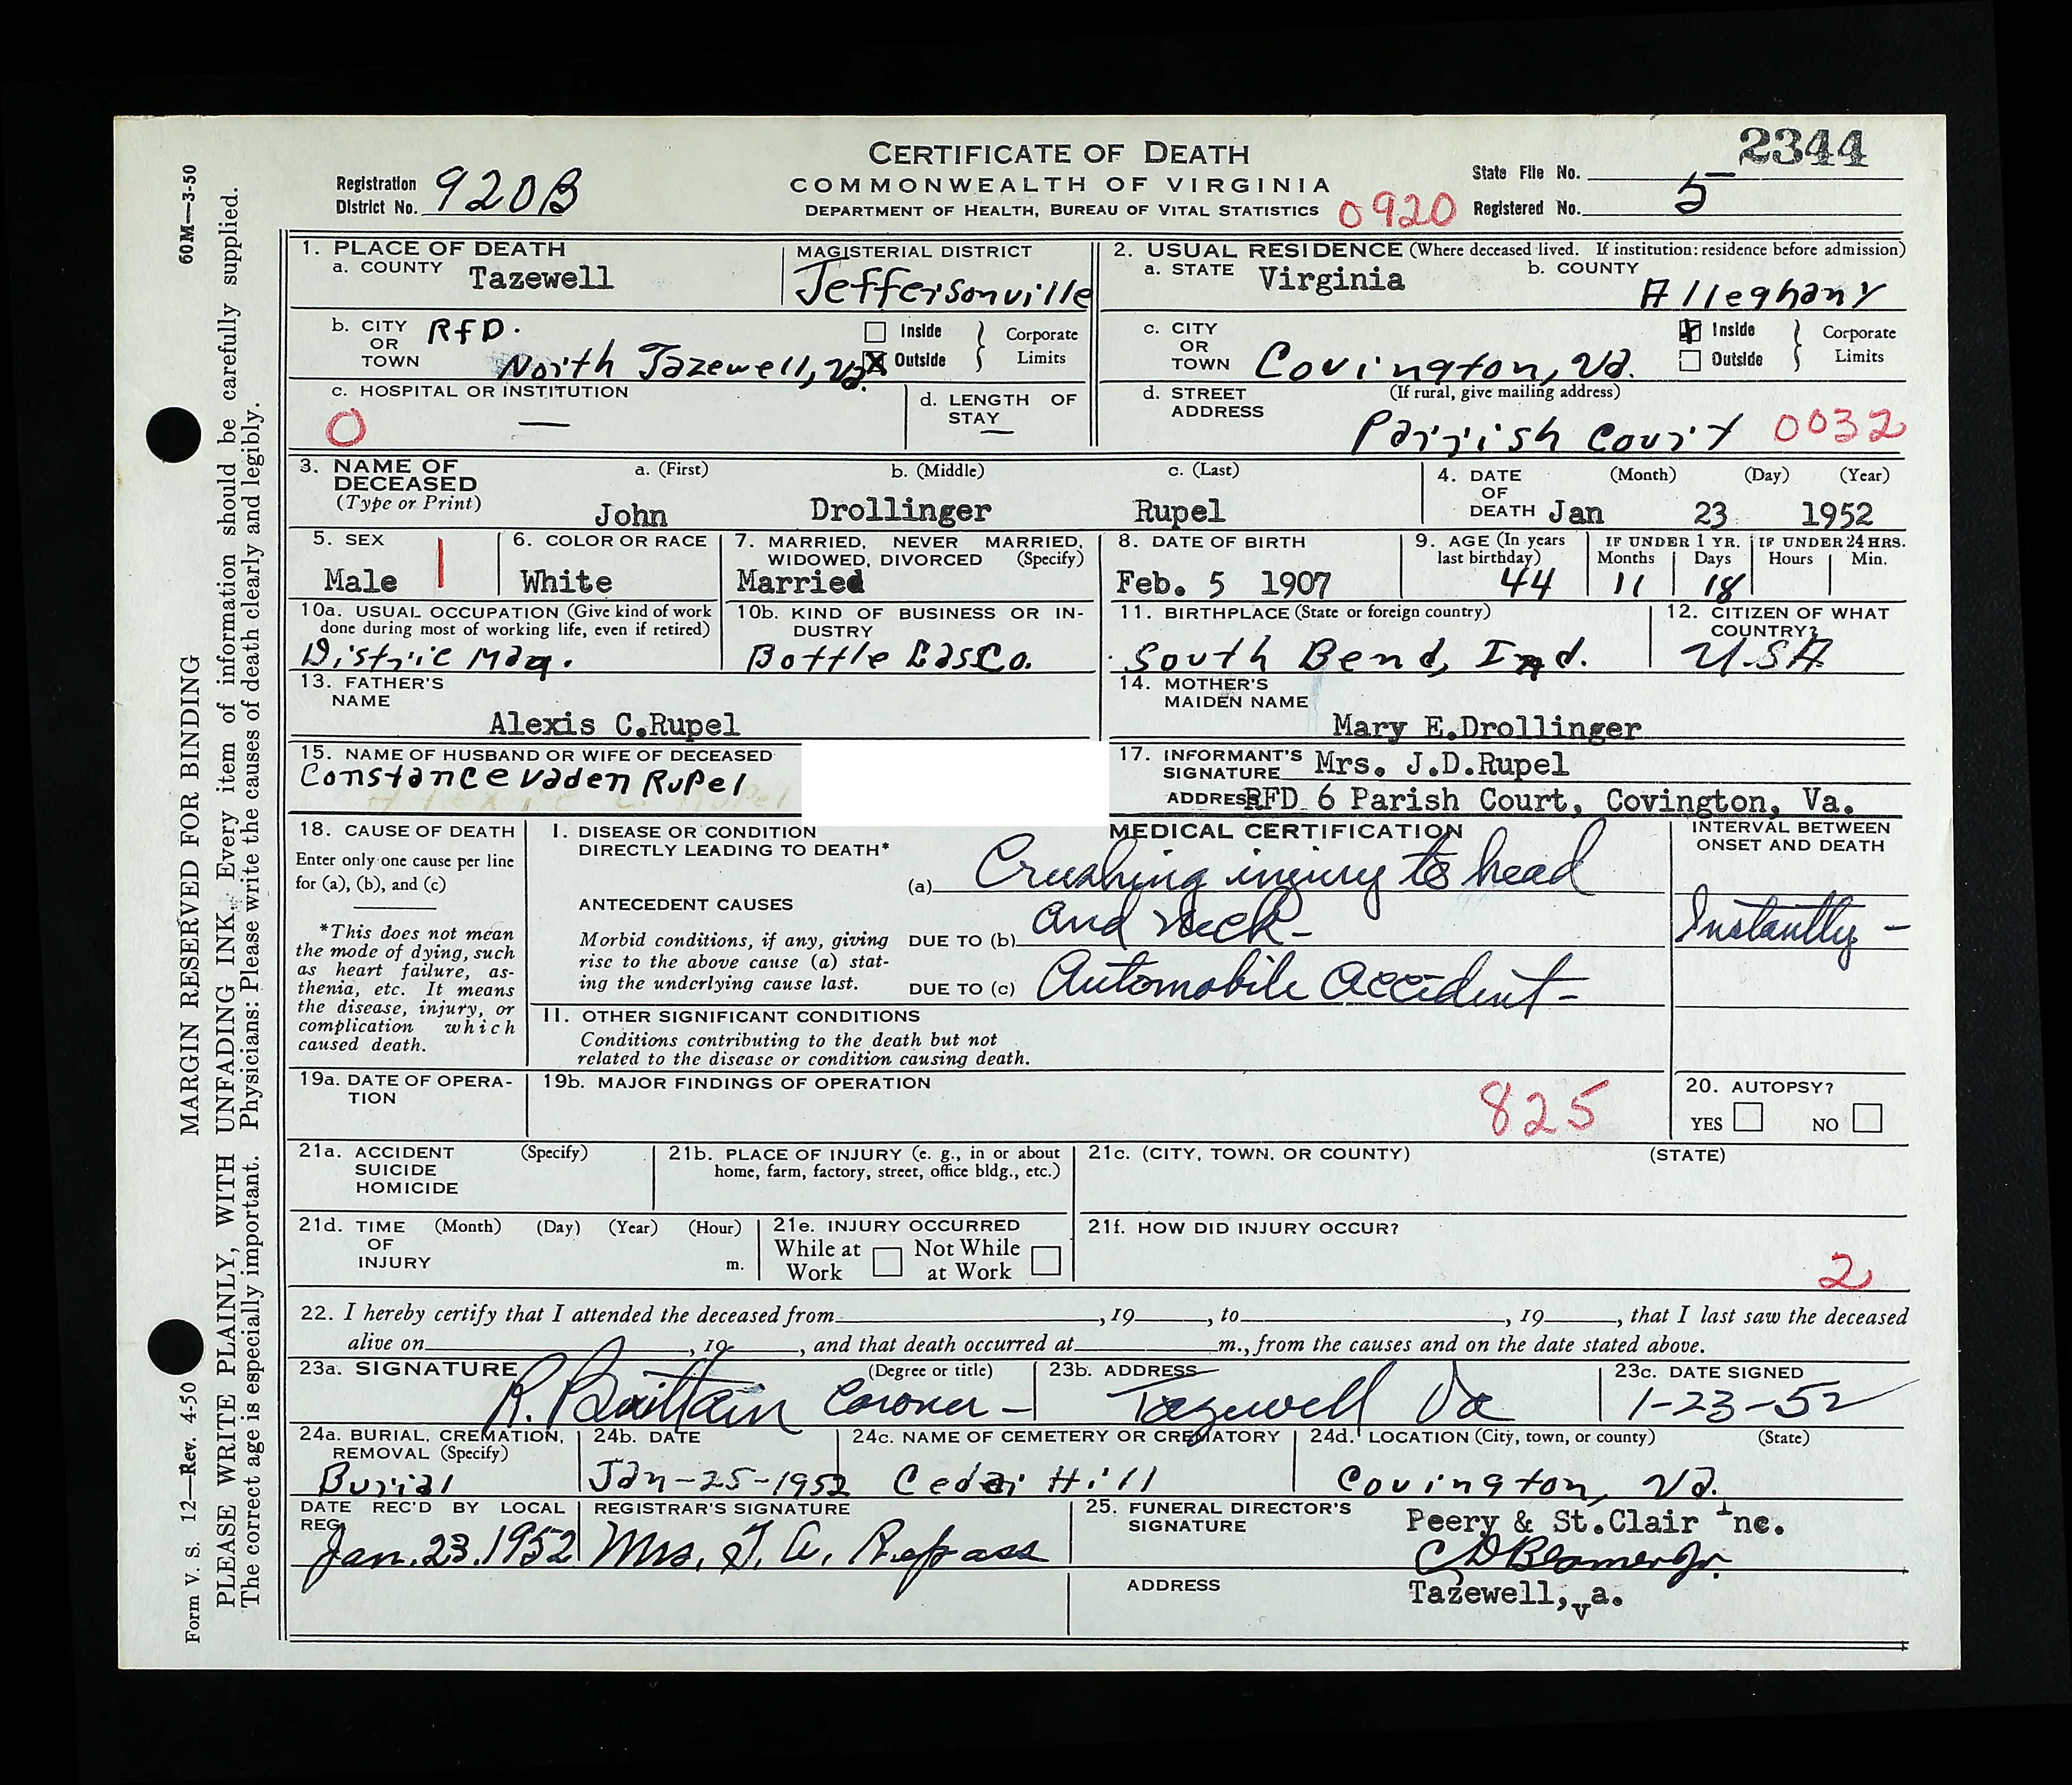 CERTIFICATE OF DEATH
COMMONWEALTH OF VIRGINIA
DEPARTMENT OF HEALTH, BUREAU OF VITAL STATISTICS
Registration District No. 920B
0920
2344
State File No.
Registered No. 5
1. PLACE OF DEATH
a. COUNTY Tazewell
MAGISTERIAL DISTRICT Jeffersonville
b. CITY OR TOWN RFD. North Tazewell, Va.
Inside
X Outside
Corporate Limits
c. HOSPITAL OR INSTITUTION
0 —
d. LENGTH OF STAY —
2. USUAL RESIDENCE (Where deceased lived. If institution: residence before admission)
a. STATE Virginia
b. COUNTY Alleghany
c. CITY OR TOWN Covington, Va.
X Inside
Outside
Corporate Limits
d. STREET ADDRESS (If rural, give mailing address)
Parrish Court 0032
3. NAME OF DECEASED (Type or Print)
a. (First) John
b. (Middle) Drollinger
c. (Last) Rupel
4. DATE OF DEATH (Month) (Day) (Year)
Jan 23 1952
5. SEX Male 1
6. COLOR OR RACE White
7. MARRIED, NEVER MARRIED, WIDOWED, DIVORCED (Specify)
Married
8. DATE OF BIRTH Feb. 5 1907
9. AGE (In years last birthday) 44
IF UNDER 1 YR. Months 11 Days 18
IF UNDER 24 HRS. Hours Min.
10a. USUAL OCCUPATION (Give kind of work done during most of working life, even if retired)
Distric Mag.
10b. KIND OF BUSINESS OR INDUSTRY
Bottle Gas Co.
11. BIRTHPLACE (State or foreign country)
South Bend, Ind.
12. CITIZEN OF WHAT COUNTRY?
USA
13. FATHER'S NAME
Alexis C.Rupel
14. MOTHER'S MAIDEN NAME
Mary E.Drollinger
15. NAME OF HUSBAND OR WIFE OF DECEASED
Constance Vaden Rupel
17. INFORMANT'S SIGNATURE Mrs. J.D.Rupel
ADDRESS RFD 6 Parish Court, Covington, Va.
18. CAUSE OF DEATH
Enter only one cause per line for (a), (b), and (c)
*This does not mean the mode of dying, such as heart failure, asthenia, etc. It means the disease, injury, or complication which caused death.
MEDICAL CERTIFICATION
I. DISEASE OR CONDITION DIRECTLY LEADING TO DEATH*
(a) Crushing injury to head
ANTECEDENT CAUSES
Morbid conditions, if any, giving rise to the above cause (a) stating the underlying cause last.
DUE TO (b) and neck-
DUE TO (c) Automobile accident-
INTERVAL BETWEEN ONSET AND DEATH
Instantly -
II. OTHER SIGNIFICANT CONDITIONS
Conditions contributing to the death but not related to the disease or condition causing death.
19a. DATE OF OPERATION
19b. MAJOR FINDINGS OF OPERATION
825
20. AUTOPSY?
YES NO
21a. ACCIDENT SUICIDE HOMICIDE (Specify)
21b. PLACE OF INJURY (e. g., in or about home, farm, factory, street, office bldg., etc.)
21c. (CITY, TOWN, OR COUNTY) (STATE)
21d. TIME OF INJURY (Month) (Day) (Year) (Hour) m.
21e. INJURY OCCURRED
While at Work Not While at Work
21f. HOW DID INJURY OCCUR?
2
22. I hereby certify that I attended the deceased from , 19 , to , 19 , that I last saw the deceased
alive on , 19 , and that death occurred at m., from the causes and on the date stated above.
23a. SIGNATURE (Degree or title)
R. Brittain Coroner -
23b. ADDRESS
Tazewell Va
23c. DATE SIGNED
1-23-52
24a. BURIAL, CREMATION, REMOVAL (Specify)
Burial
24b. DATE
Jan-25-1952
24c. NAME OF CEMETERY OR CREMATORY
Cedar Hill
24d. LOCATION (City, town, or county) (State)
Covington, Va.
DATE REC'D BY LOCAL REG.
Jan. 23, 1952
REGISTRAR'S SIGNATURE
Mrs. T. A. Repass
25. FUNERAL DIRECTOR'S SIGNATURE
Peery & St.Clair Inc.
ADDRESS
Tazewell, Va.
60M—3-50
MARGIN RESERVED FOR BINDING
PLEASE WRITE PLAINLY, WITH UNFADING INK. Every item of information should be carefully supplied.
The correct age is especially important. Physicians: Please write the causes of death clearly and legibly.
Form V. S. 12—Rev. 4-50